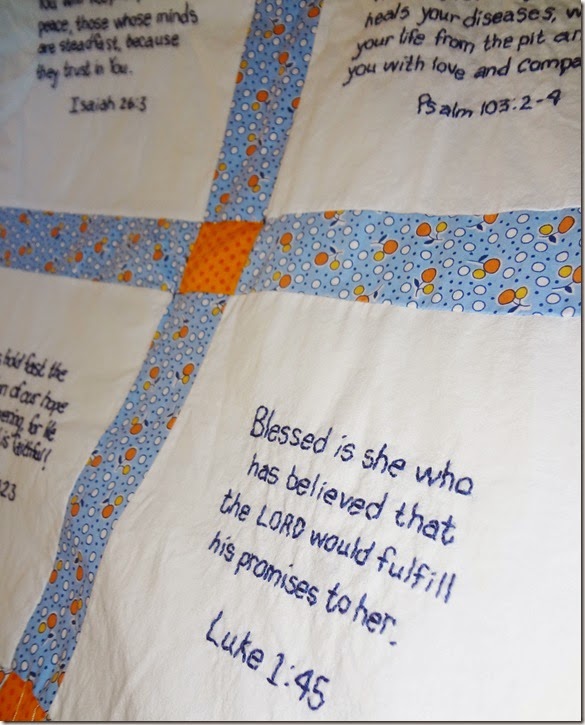 You will
peace, those whose minds
are steadfast, because
they trust in You.
Isaiah 26:3
heals your diseases,
your life from the pit
you with love and
Psalm 103:2-4
hold fast the
of our hope
for
is faithful!
23
Blessed is she who
has believed that
the LORD would fulfill
his promises to her.
Luke 1:45